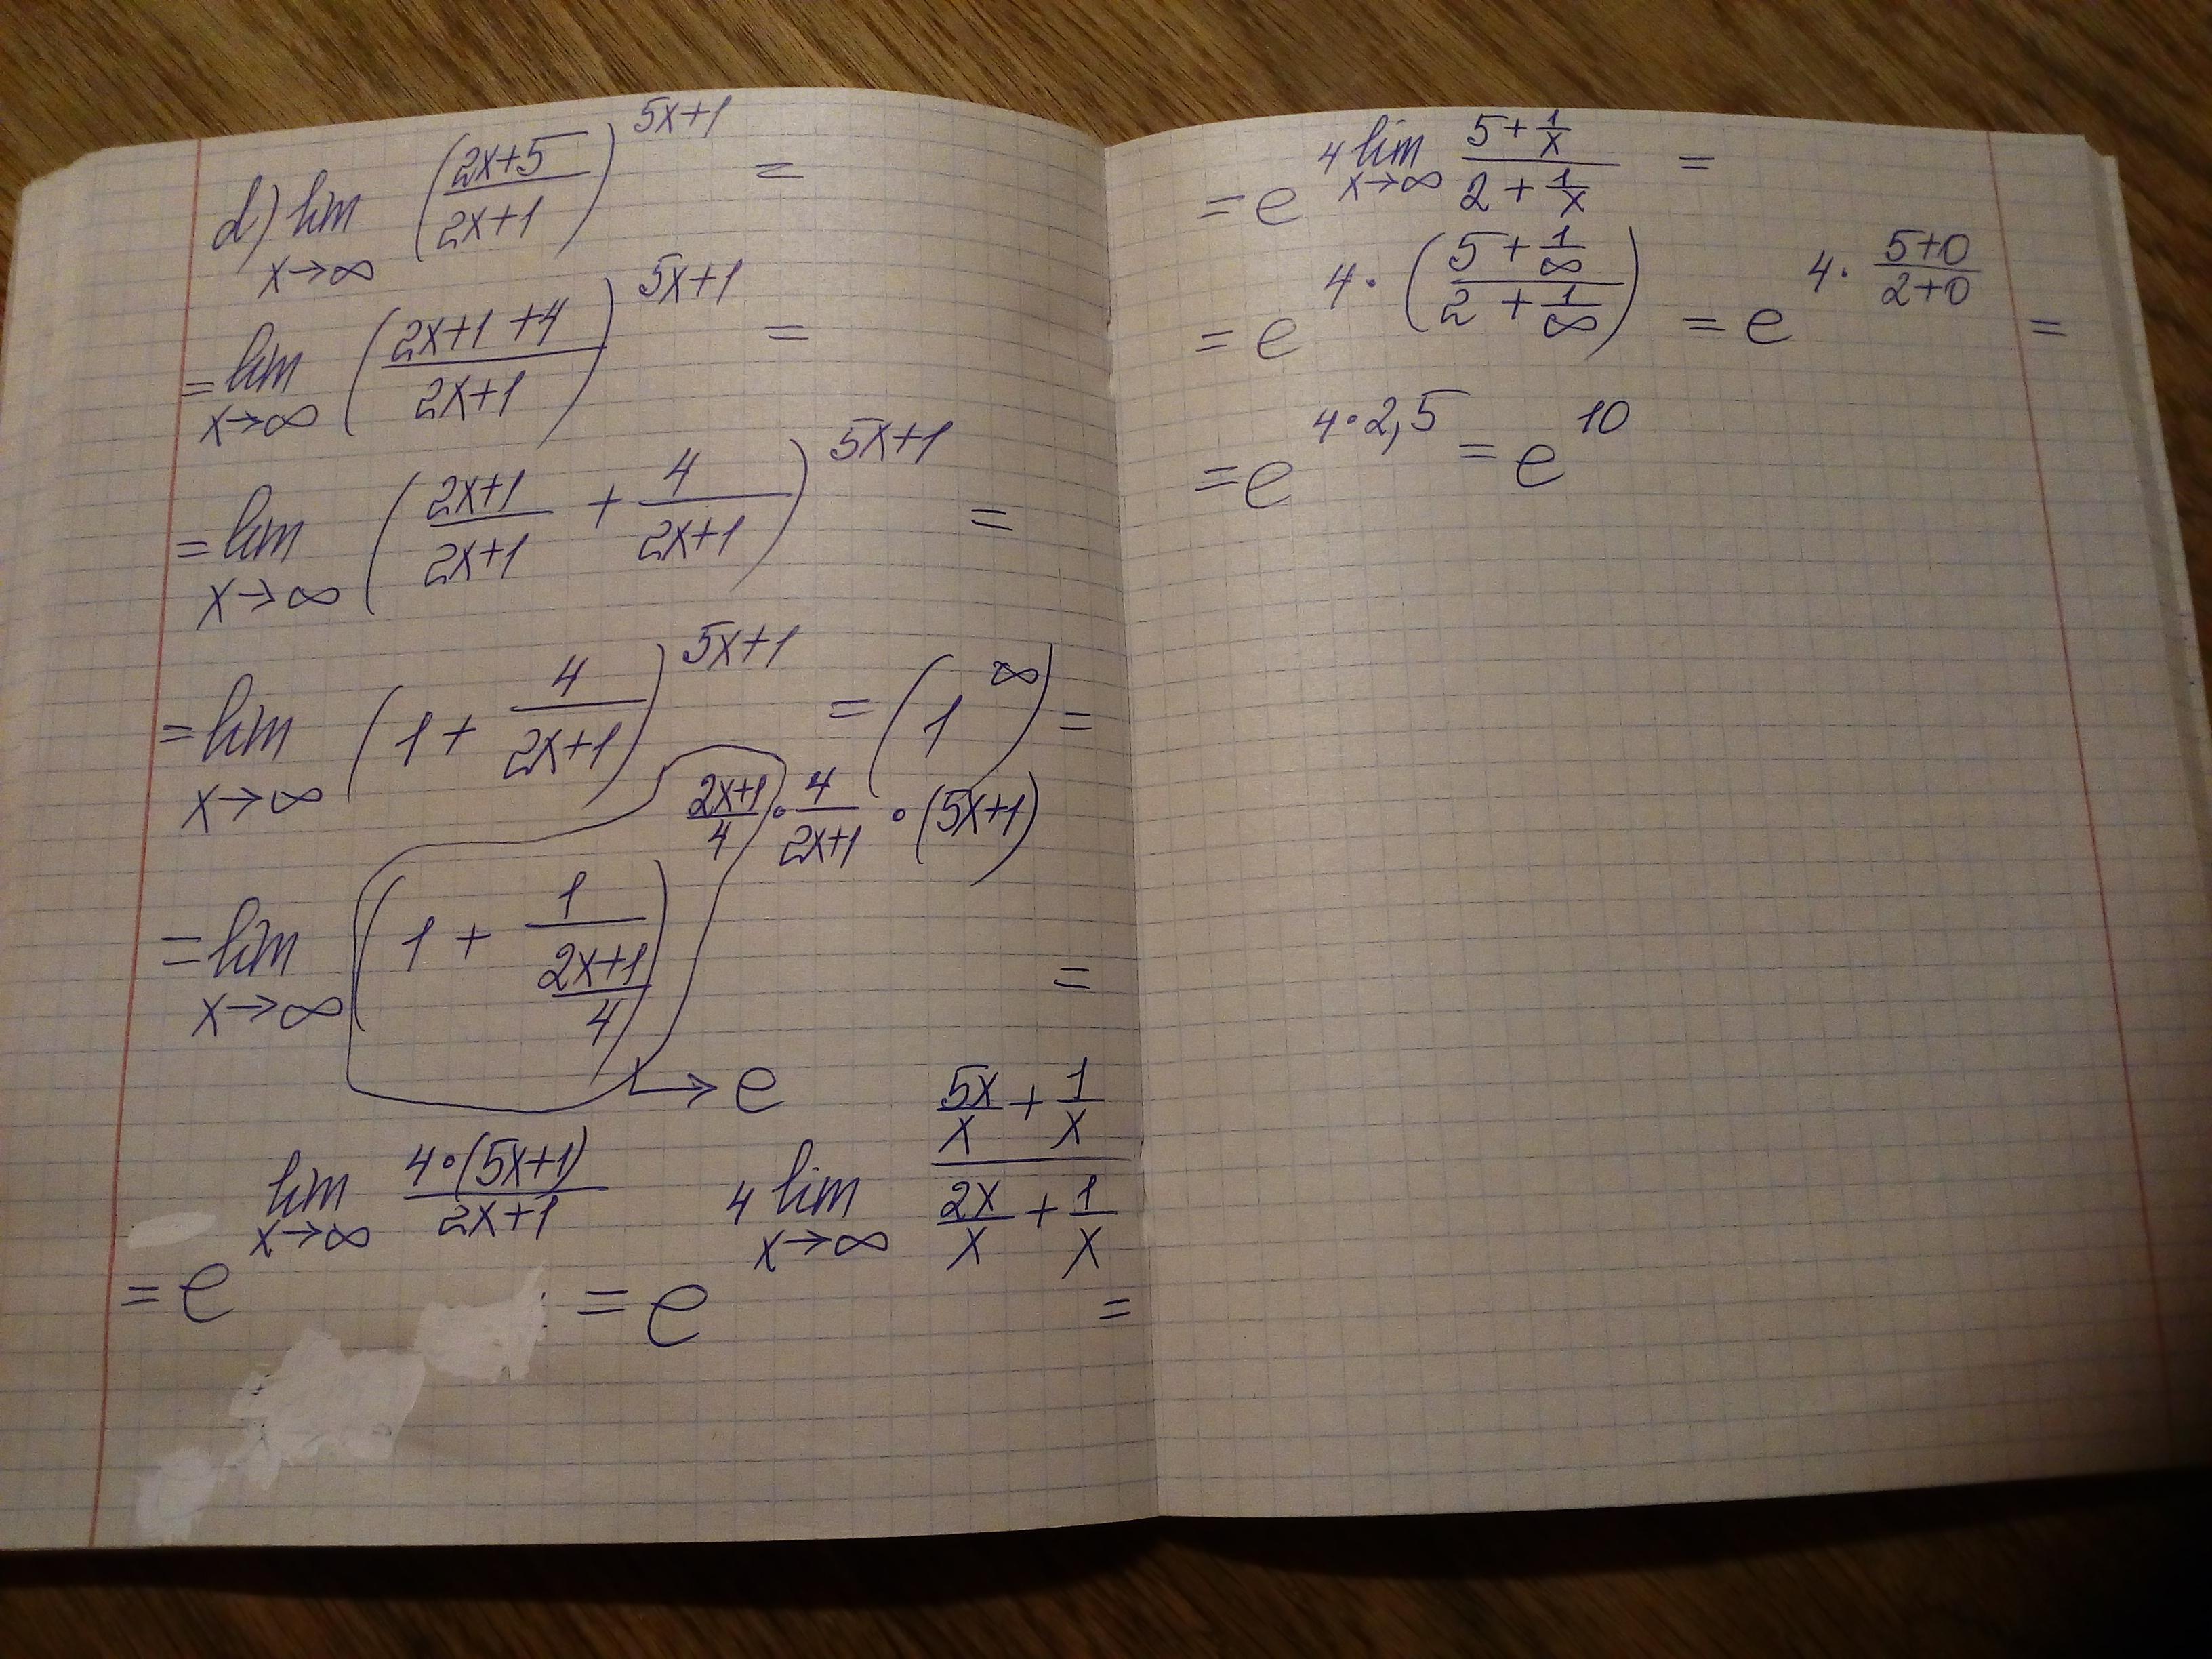 d) lim x→∞ ((2x+5)/(2x+1))^(5x+1) =
= lim x→∞ ((2x+1+4)/(2x+1))^(5x+1) =
= lim x→∞ ((2x+1)/(2x+1) + 4/(2x+1))^(5x+1) =
= lim x→∞ (1 + 4/(2x+1))^(5x+1) = (1^∞) =
= lim x→∞ (1 + 1/((2x+1)/4))^((2x+1)/4 · 4/(2x+1) · (5x+1)) =
→ e
= e^(lim x→∞ (4·(5x+1))/(2x+1)) = e^(4 lim x→∞ (5x/x + 1/x)/(2x/x + 1/x)) =
= e^(4 lim x→∞ (5 + 1/x)/(2 + 1/x)) =
= e^(4 · ((5 + 1/∞)/(2 + 1/∞))) = e^(4 · (5+0)/(2+0)) =
= e^(4·2,5) = e^10